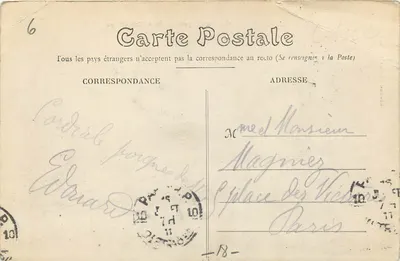 6
Carte Postale
Tous les pays étrangers n'acceptent pas la correspondance au recto (Se renseigner à la Poste)
CORRESPONDANCE
ADRESSE
Cordiale poignée de
Edouard
Mme et Monsieur
Magnier
place des Victoires
Paris
18